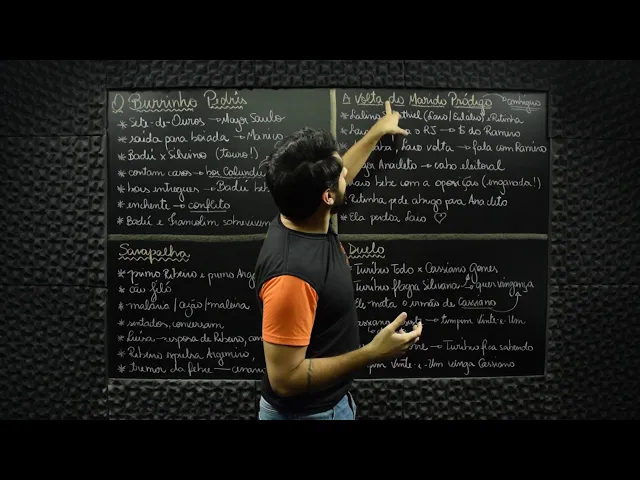 O Burrinho Pedrês
* Sete-de-Ouros → Major Saulo
* saída para boiada → Maniço
* Badú x Silvino (touro!)
* contam casos → boi Calundú
* bois entregues → Badú beb
* enchente → conflito
* Badú e Francolim sobrevivem
A volta do Marido Pródigo
* Lalino (Laio / Eulálio) x Ritinha
o RJ → $ do Ramiro
, Laio volta → fala com Ramiro
Anacleto → cabo eleitoral
bebe com a oposição (enganada!)
* Ritinha pede abrigo para Anacleto
* Ela perdoa Laio ♡
Sarapalha
* primo Ribeiro e primo Arg
* cão Jiló
* malária / sezão / maleira
* sentados, conversam
* Luisa → esposa de Ribeiro,
* Ribeiro expulsa Argemiro,
* tremor da febre
Duelo
* Turíbio Todo x Cassiano Gomes
* Turíbio flagra Silivana → quer vingança
Ele mata o irmão de Cassiano
→ Timpim Vinte-e-Um
→ Turíbio fica sabendo
Vinte-e-Um vinga Cassiano